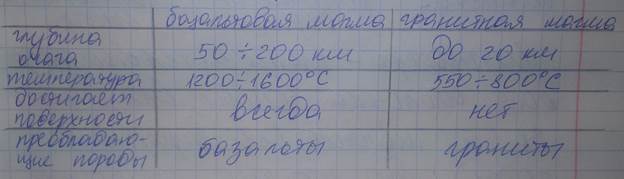 базальтовая магма гранитная магма
глубина
очага 50÷200 км до 20 км
температура 1200÷1600°С 550÷800°С
достигает
поверхности всегда нет
преобладаю-
щие породы базальты граниты